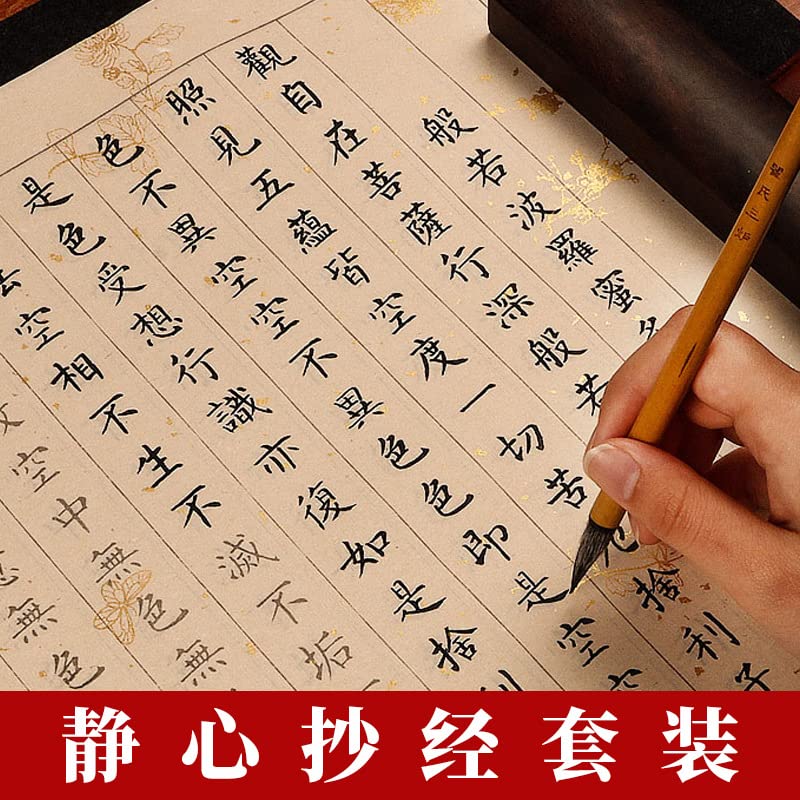 般若波羅蜜
觀自在菩薩行深般若
照見五蘊皆空度一切苦厄捨利子
色不異空空不異色色即是空空
是色受想行識亦復如是捨利
空相不生不滅不垢
空中無色無
無色
静心抄经套装